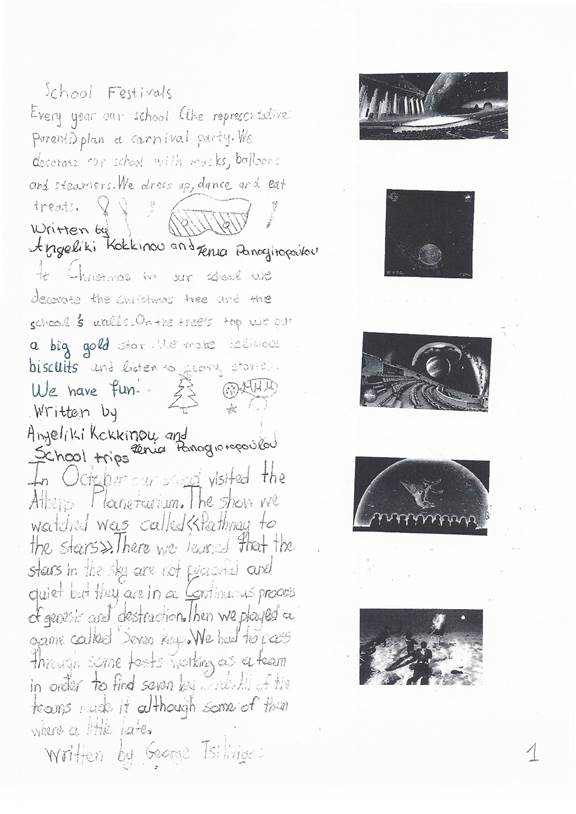 School Festivals
Every year our school (the representative
parents) plan a carnival party. We
decorate our school with masks, balloons
and steamers. We dress up, dance and eat
treats.
Written by
Angeliki Kokkinou and Xenia Panagiotopoulou
At Christmas in our school we
decorate the Christmas tree and the
school's walls. On the tree's top we put
a big gold star. We make delicious
biscuits and listen to scary stories.
We have fun!
Written by
Angeliki Kokkinou and
Xenia Panagiotopoulou
School trips
In October our school visited the
Athens Planetarium. The show we
watched was called «Pathway to
the stars». There we learned that the
stars in the sky are not peaceful and
quiet but they are in a Continuous process
of genesis and destruction. Then we played a
game called "Seven key". We had to pass
through some tests working as a team
in order to find seven key All of the
teams made it although some of them
where a little late.
Written by George
1